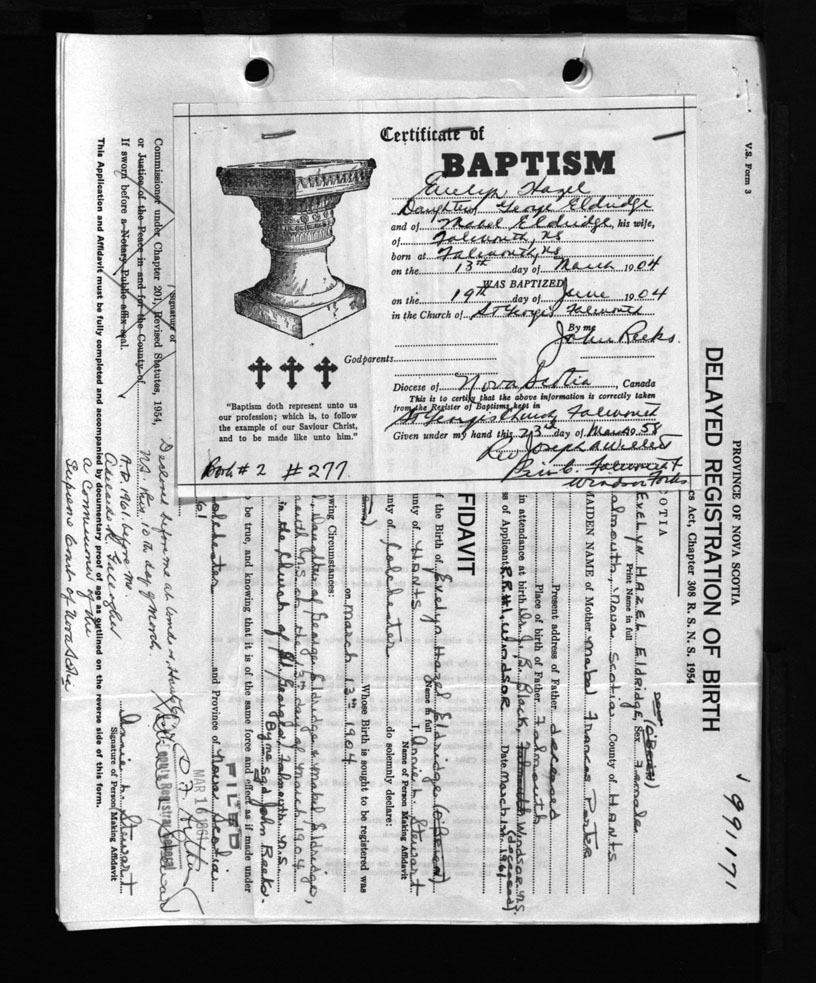 Certificate of
BAPTISM
Evelyn Hazel
Daughter of George Eldridge
and of Mabel Eldridge, his wife,
of Falmouth, NS
born at Falmouth, NS
on the 13th day of March 1904
WAS BAPTIZED
on the 19th day of June 1904
in the Church of St Georges Falmouth
By me
John Reeks.
Godparents
Diocese of Nova Scotia, Canada
This is to certify that the above information is correctly taken
from the Register of Baptisms kept in
St Georges Church, Falmouth
Given under my hand this 23rd day of Mar. 1958
Rev Joseph Willett
Falmouth
Windsor Forks
"Baptism doth represent unto us
our profession; which is, to follow
the example of our Saviour Christ,
and to be made like unto him."
Book # 2 # 277
V.S. Form 3
991171
PROVINCE OF NOVA SCOTIA
DELAYED REGISTRATION OF BIRTH
cs Act, Chapter 308 R. S. N. S. 1954
COTIA
(O'Brien)
Evelyn Hazel Eldridge, Sex Female
Print Name in full
almouth, Nova Scotia County of Hants
MAIDEN NAME of Mother Mabel Frances Porter
Present address of Father deceased
Place of birth of Father Falmouth
in attendance at birth Dr. J. B. Black, Falmouth Windsor N.S.
(deceased)
ss of Applicant R.R. #1, Windsor Date March 1st 1961
FIDAVIT
f the Birth of Evelyn Hazel Eldridge (O'Brien)
Name in full
unty of Hants I, Annie L. Stewart
Name of Person Making Affidavit
nty of Colchester do solemnly declare:
Whose Birth is sought to be registered was
on March 13th 1904
owing Circumstances:
, Daughter of George Eldridge & Mabel Eldridge,
mouth N.S. on the 13th day of March 1904
in the Church of St. Georges, Falmouth N.S.
By me sgd John Reeks.
o be true, and knowing that it is of the same force and effect as if made under
olchester and Province of Nova Scotia
FILED
MAR 16 1961
Registrar General
Annie L. Stewart
Signature of Person Making Affidavit
Declared before me at
N.S. this 10th day of March
A.D. 1961. before me
Adelaide R. Gallagher
a Commissioner of the
Supreme Court of Nova Scotia
Signature of
Commissioner under Chapter 201, Revised Statutes, 1954,
or Justice of the Peace in and for the County of
If sworn before a Notary Public affix seal.
This Application and Affidavit must be fully completed and accompanied by documentary proof of age as outlined on the reverse side of this form.